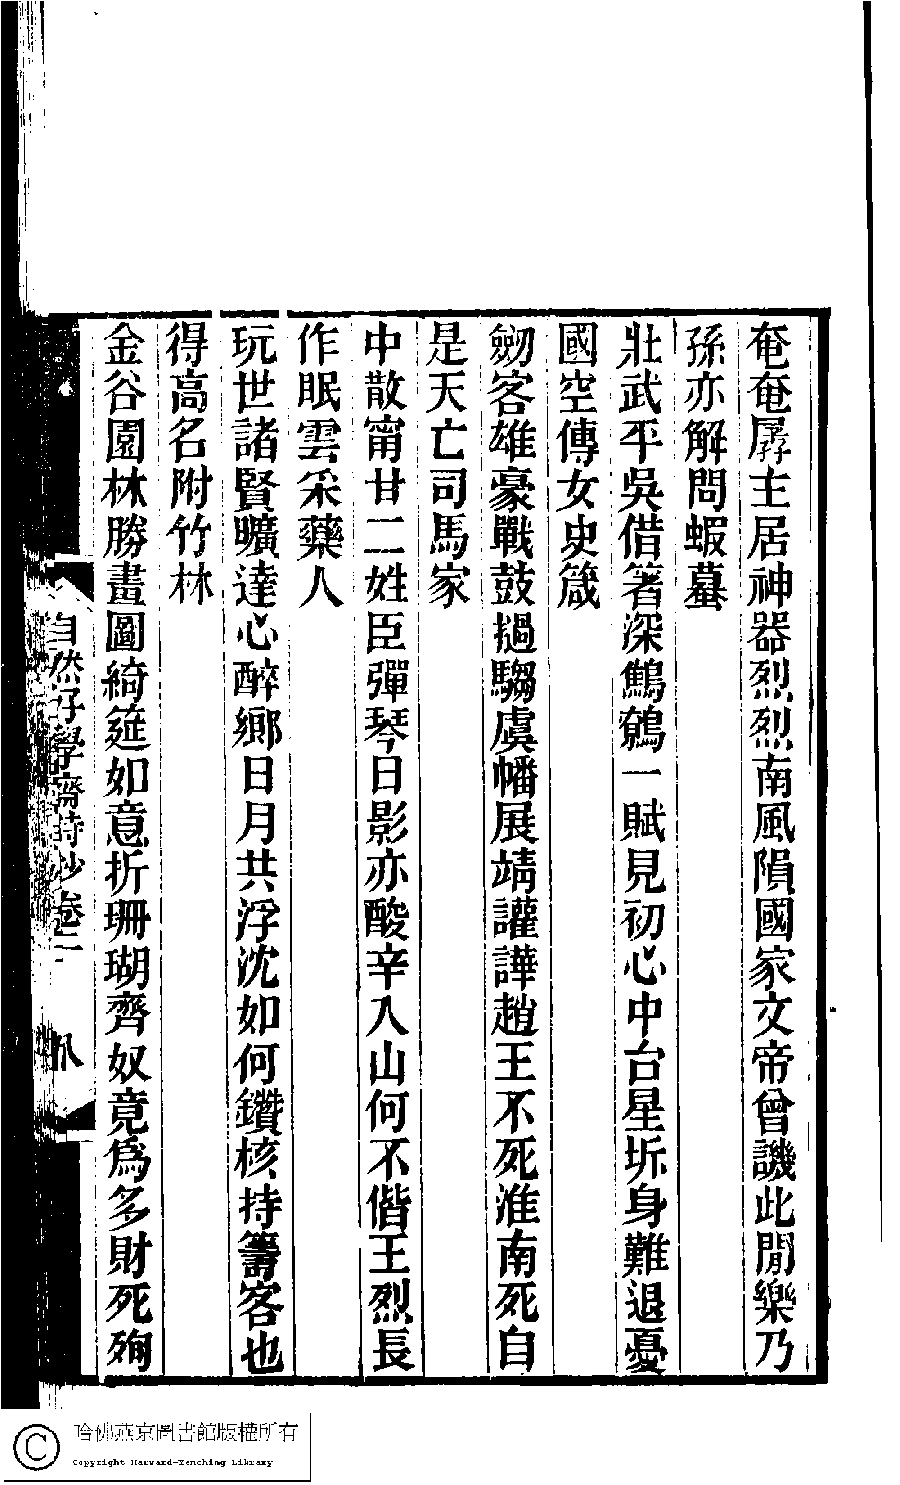 奄奄孱主居神器烈烈南風隕國家文帝曾譏此閒樂乃
孫亦解問蝦蟇
壯武平吳借箸深鷦鷯一賦見初心中台星坼身難退憂
國空傳女史箴
劒客雄豪戰鼓撾騶虞幡展靖讙譁趙王不死淮南死自
是天亡司馬家
中散甯甘二姓臣彈琴日影亦酸辛入山何不偕王烈長
作眠雲采藥人
玩世諸賢曠達心醉鄉日月共浮沈如何鑽核持籌客也
得高名附竹林
金谷園林勝畫圖綺筵如意折珊瑚齊奴竟爲多財死殉
自然好學齋詩鈔卷二
八
哈佛燕京圖書館版權所有
Copyright Harvard-Yenching Library